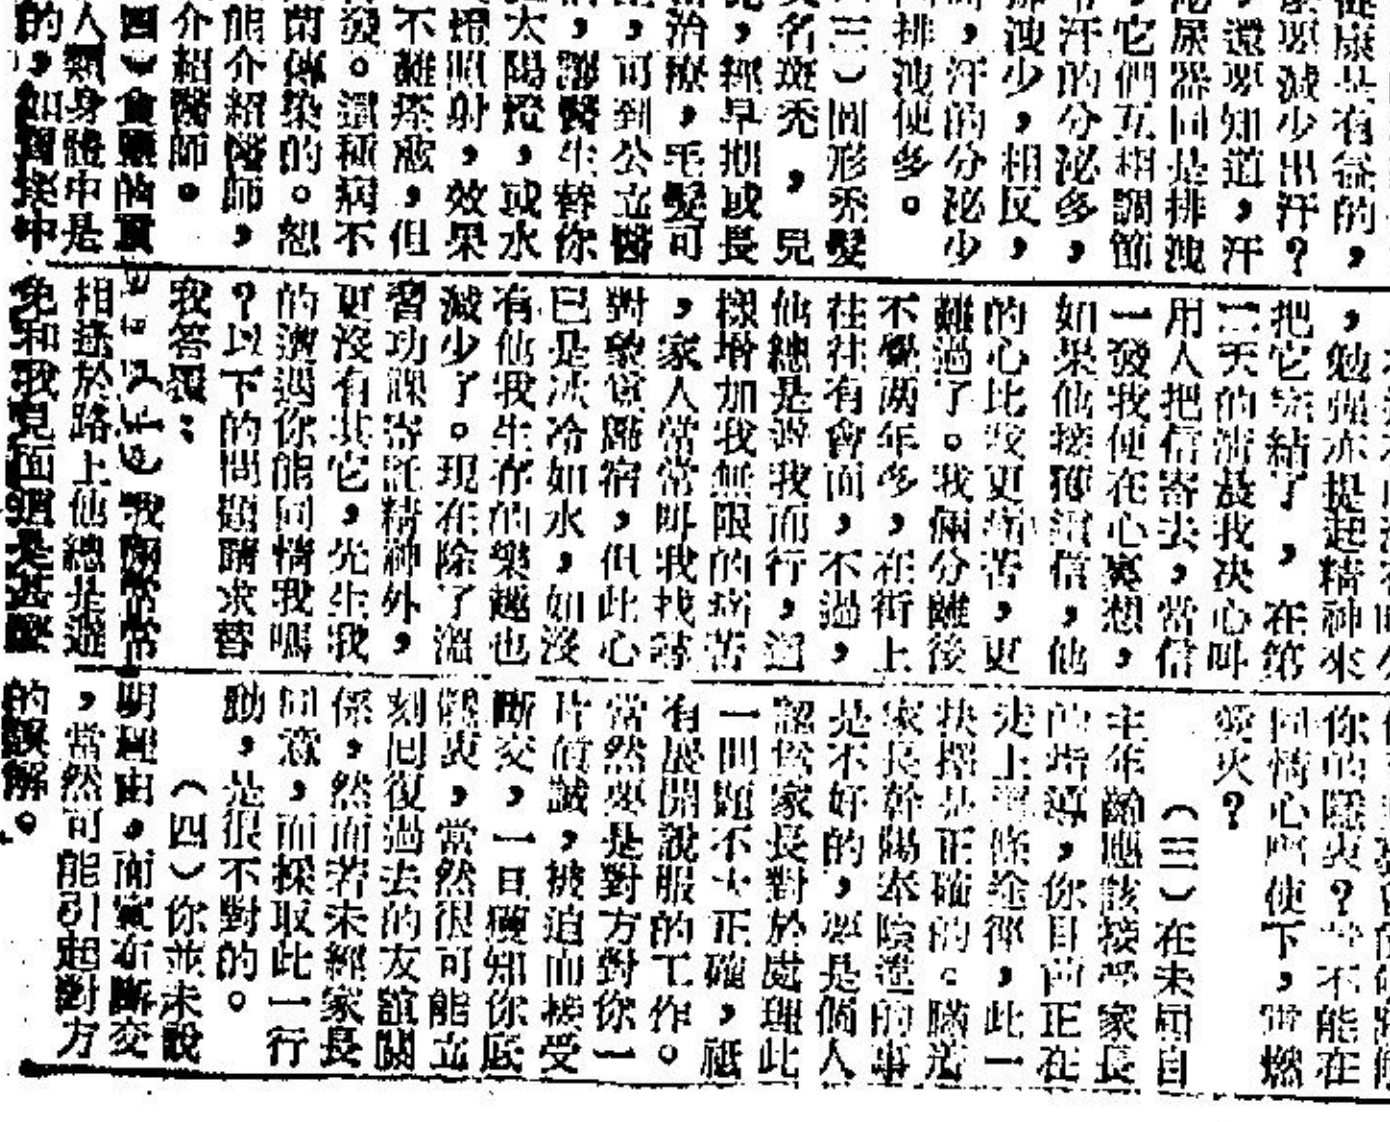 康是有益的，
麼要減少出汗？
，還要知道，汗
泌尿器同是排洩
，它們互相調節
汗的分泌多，
排洩少，相反，
，汗的分泌少
排洩便多。
（三）圓形禿髮
名斑禿，見
，經早期或長
治療，毛髮可
，可到公立醫
，請醫生替你
太陽燈，或水
燈照射，效果
不難痊癒，但
發。這種病不
菌傳染的。恕
能介紹醫師，
介紹醫師。
四）會頭的
人類身體中是
的，如 集中
，勉强亦提起精神來
把它完結了，在第
二天的清晨我决心叫
用人把信寄去，當信
一發我便在心裏想，
如果他接獲這信，他
的心比我更痛苦，更
難過了。我倆分離後
不覺两年多，在街上
往往有會面，不過，
他總是避我而行，這
樣增加我無限的痛苦
，家人常常叫我找尋
對象 宿，但此心
已是冰冷如水，如沒
有他我生存的樂趣也
減少了。現在除了溫
習功課寄託精神外，
更沒有其它，先生我
的遭遇你能同情我嗎
？以下的問題請求替
我答覆：
我倆常常
相逢於路上他總是避
免和我見面這是甚麼
你的隱衷？並不能在
同情心所使下，重燃
愛火？
（三）在未屆自
主年齡應該接受家長
的指導，你目前正在
走上這條途徑，此一
抉擇是正確的。瞞着
家長幹陽奉陰違的事
是不好的，要是個人
認爲家長對於處理此
一問題不大正確，祗
有展開說服的工作。
當然要是對方對你一
片眞誠，被迫而接受
斷交，一旦獲知你底
隱衷，當然很可能立
刻回復過去的友誼關
係，然而若未經家長
同意，而採取此一行
動，是很不對的。
（四）你並未說
明理由，而宣布斷交
，當然可能引起對方
的誤解。